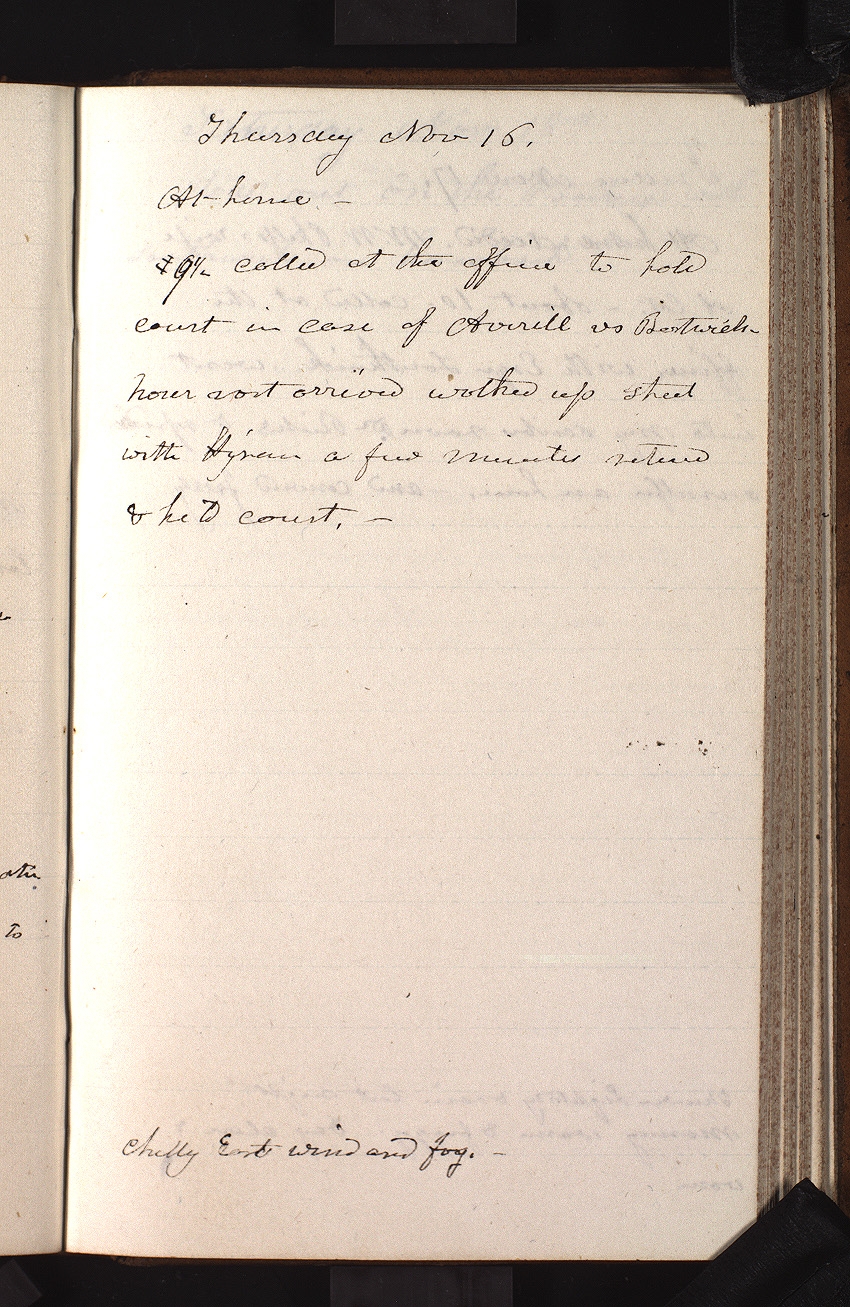 Thursday Nov 16.
At home. –
9½ called at the office to hold
court in case of Averill vs Bostwick
hour not arrived walked up street
with Hyrum a few minutes retured
& held court. –
Chilly East wind and fog. –
to